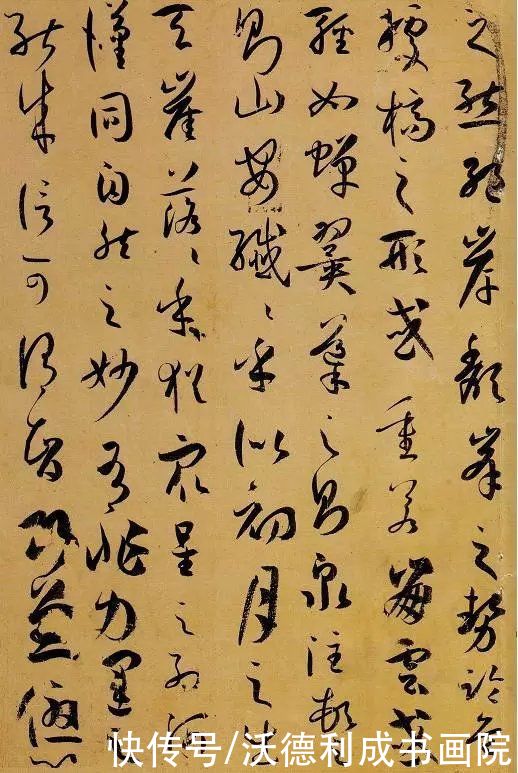 之態絶岸頹峯之勢臨危
據槁之形或重若崩雲或
輕如蟬翼導之則泉注頓之
則山安纖〻乎似初月之出
天崖落〻乎猶衆星之列河
漢同自然之妙有非力運之
能成信可謂智巧兼優心
快传号/沃德利成书画院